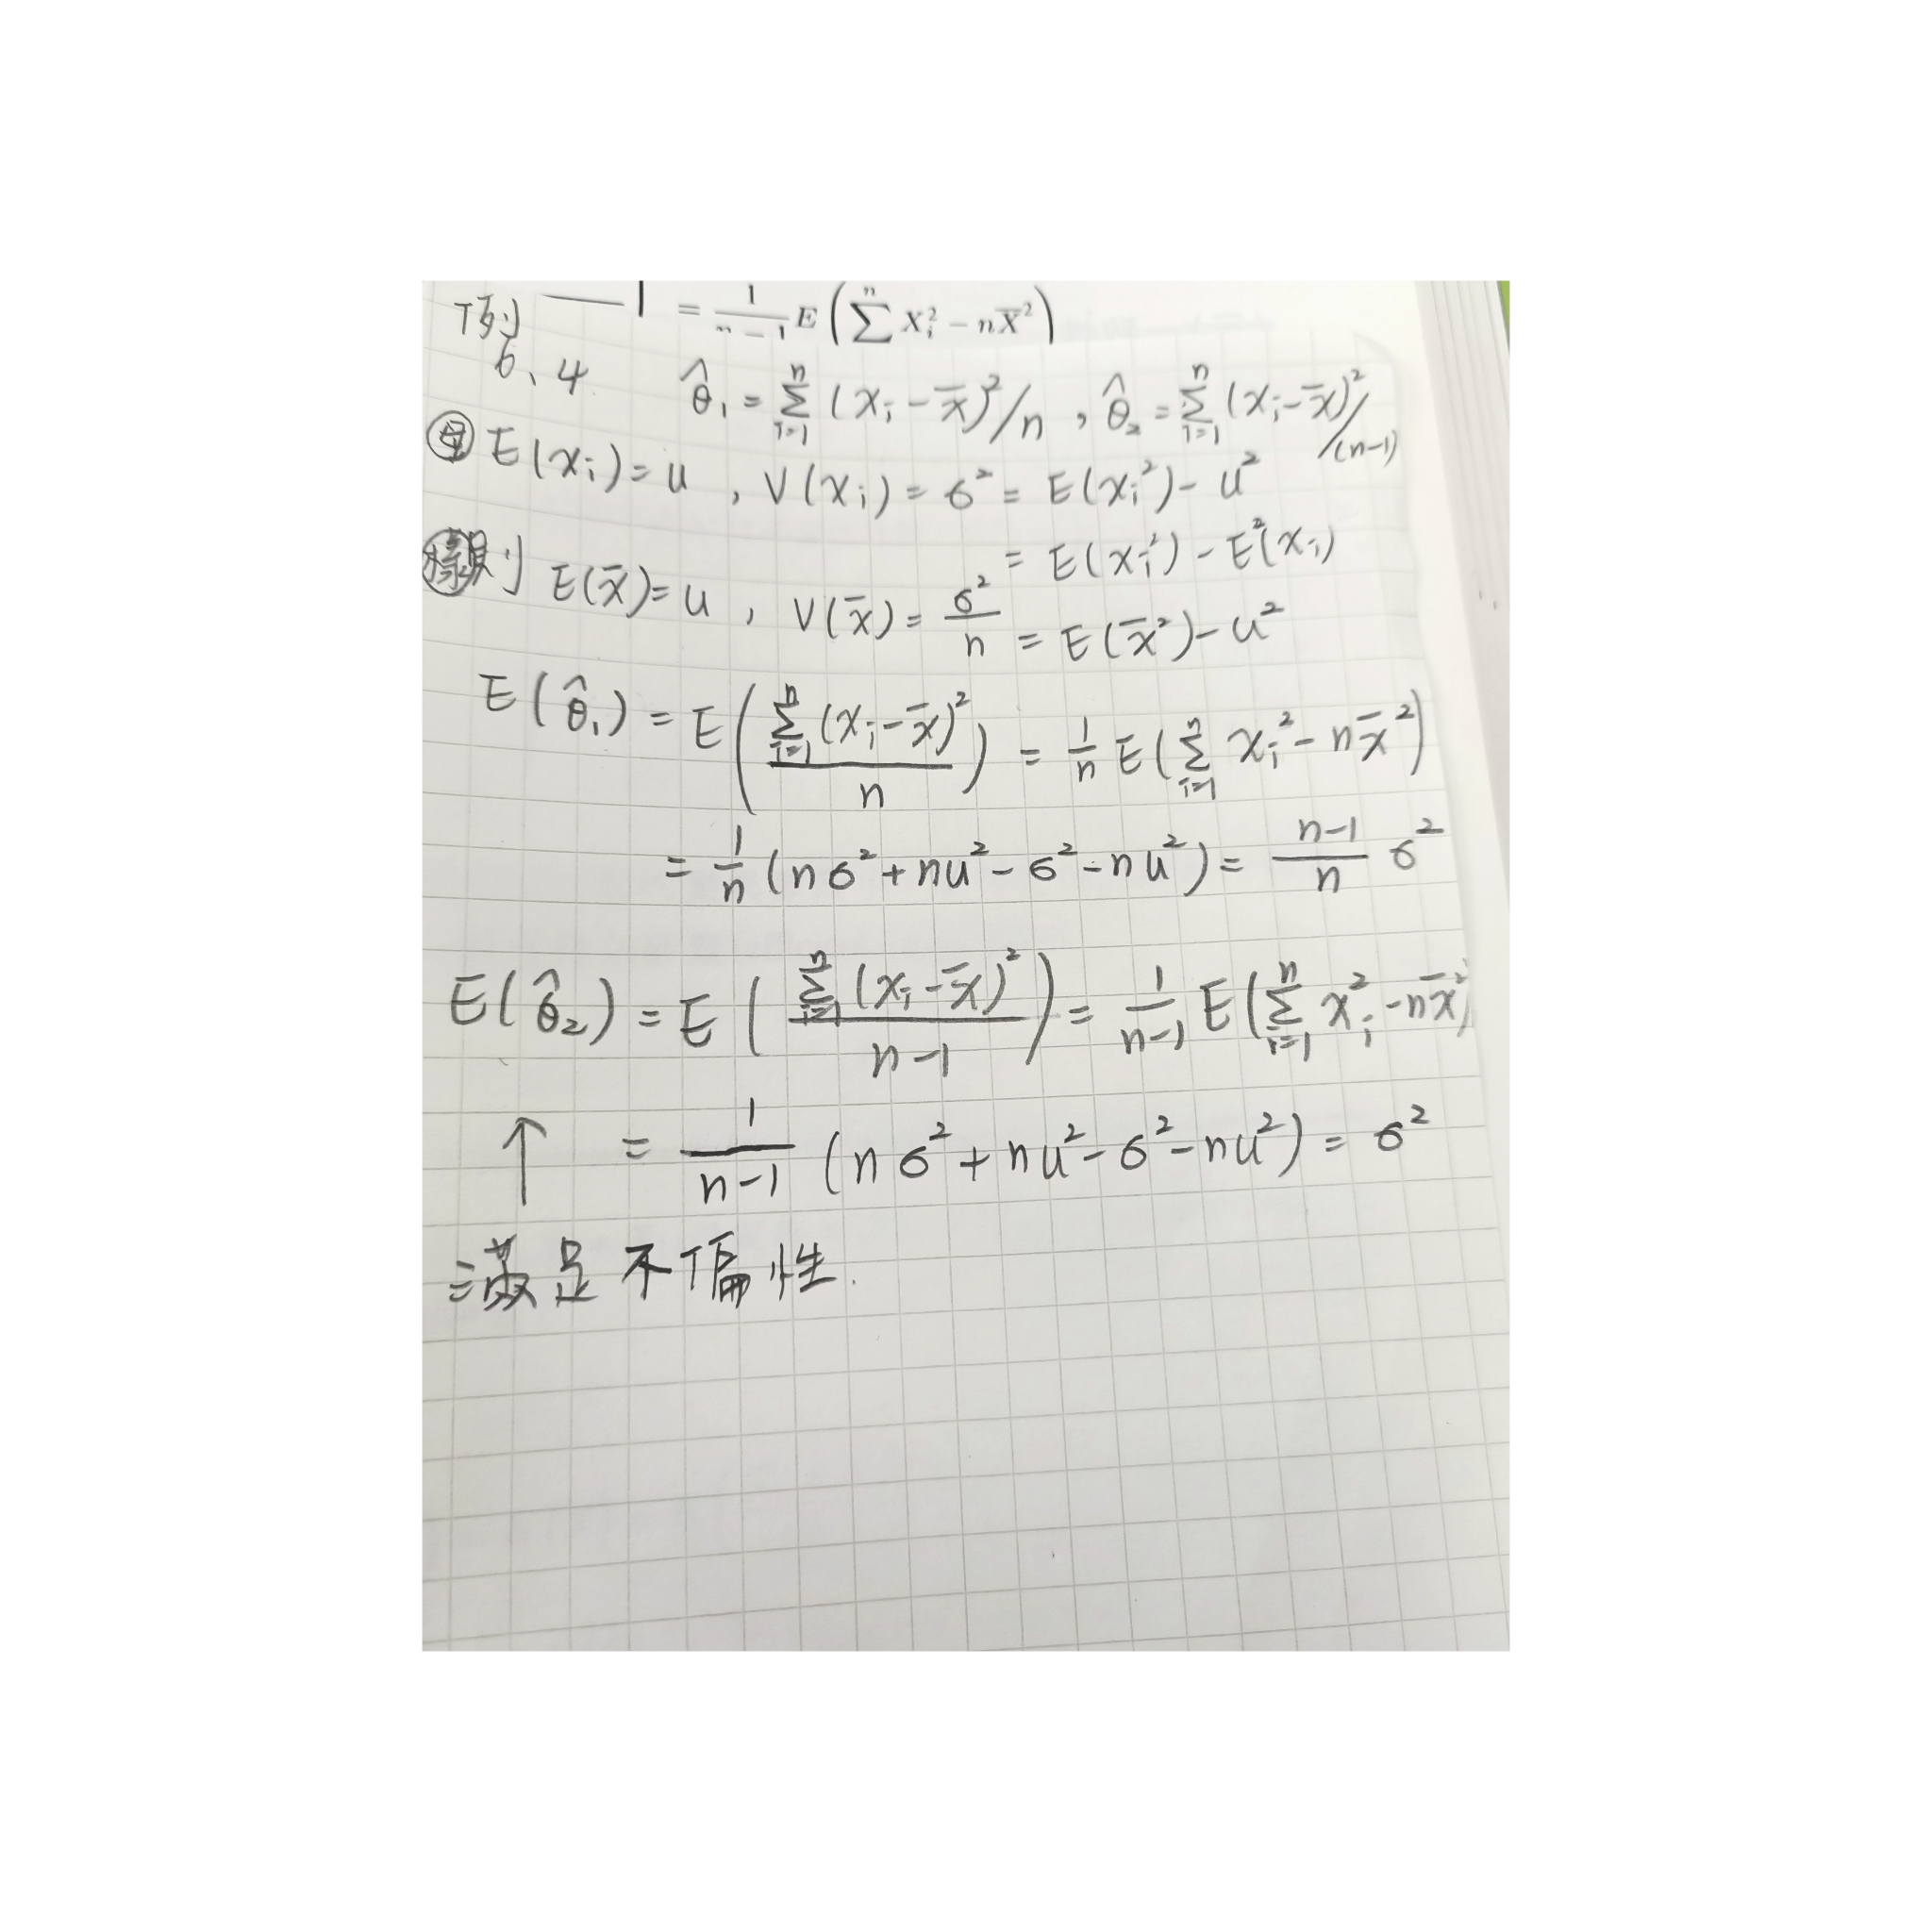 例 = 1/(n-1) E(∑ⁿ Xᵢ² - nX̄²)
6、4 θ̂₁ = ∑ᵢ₌₁ⁿ (xᵢ - x̄)²/n , θ̂₂ = ∑ᵢ₌₁ⁿ (xᵢ - x̄)²/(n-1)
母 E(xᵢ) = u , V(xᵢ) = σ² = E(xᵢ²) - u²
= E(xᵢ²) - E²(xᵢ)
樣 則 E(x̄) = u , V(x̄) = σ²/n = E(x̄²) - u²
E(θ̂₁) = E(∑ᵢ₌₁ⁿ (xᵢ - x̄)²/n) = 1/n E(∑ᵢ₌₁ⁿ xᵢ² - nx̄²)
= 1/n (nσ² + nu² - σ² - nu²) = (n-1)/n σ²
E(θ̂₂) = E(∑ᵢ₌₁ⁿ (xᵢ - x̄)²/(n-1)) = 1/(n-1) E(∑ᵢ₌₁ⁿ xᵢ² - nx̄²)
↑ = 1/(n-1) (nσ² + nu² - σ² - nu²) = σ²
滿足不偏性.